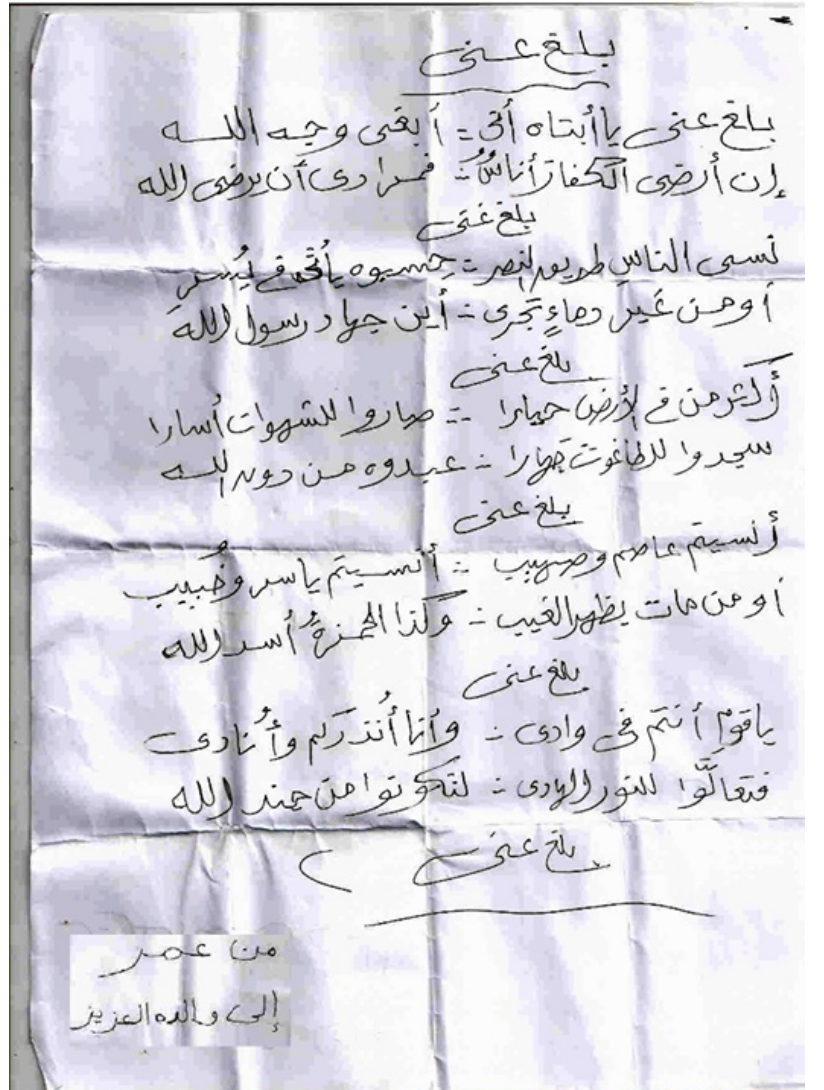 بلغ عنى
بلغ عنى يا أبتاه أنى :- أبغى وجه الله
إن أرضى الكفار أناسٌ :- فمرادى أن يرضى الله
بلغ عنى
نسى الناس طريق النصر :- حسبوه يأتى فى يُسر
أو من غير دماءٍ تجرى :- أين جهاد رسول الله
بلغ عنى
أكثر من فى الأرض حيارا :- صاروا للشهوات أسارا
سجدوا للطاغوت جهارا :- عبدوه من دون الله
بلغ عنى
أنسيتم عاصم وصهيب :- أنسيتم ياسر وخُبيب
أو من مات بظهر الغيب :- وكذا الحمزةُ أسد الله
بلغ عنى
ياقوم أنتم فى وادى :- وأنا أُنذركم وأُنادى
فتعالَوا للنور الهادى :- لتكونوا من جند الله
بلغ عنى
من عمر
إلى والده العزيز